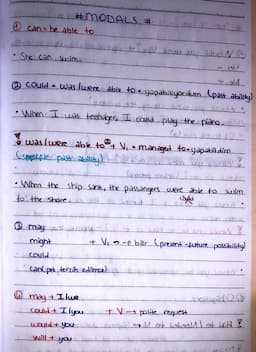 # MODALS #
① can = be able to
• She can swim.
② could = was/were able to = yapabiliyordum (past ability)
• When I was teenager, I could play the piano.
! was/were able to + V₁ = managed to = yapabildim
(specific past ability)
• When the ship sank, the passengers were able to swim
to the shore. could
③ may
might + V₁ → -e bilir (present-future possibility)
could
can (pek tercih edilmez)
④ may + I/we
could + I/you + V → polite request
would + you
will + you